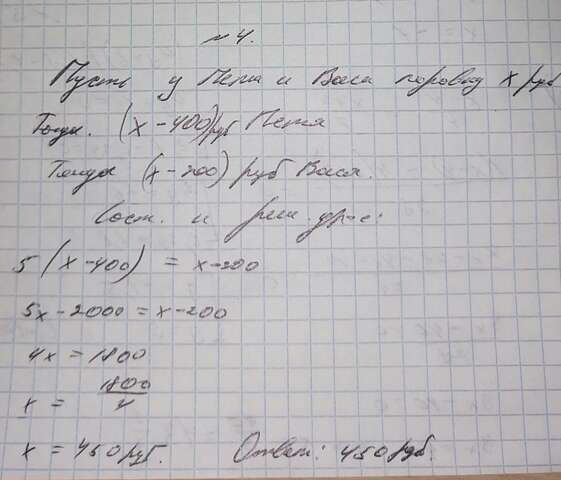 № 4.
Пусть у Пети и Васи поровну x руб
Тогда. (x - 400) руб Петя
Тогда (x - 200) руб Вася.
Сост. и реш. ур-е:
5 (x - 400) = x - 200
5x - 2000 = x - 200
4x = 1800
x = 1800/4
x = 450 руб. Ответ: 450 руб.